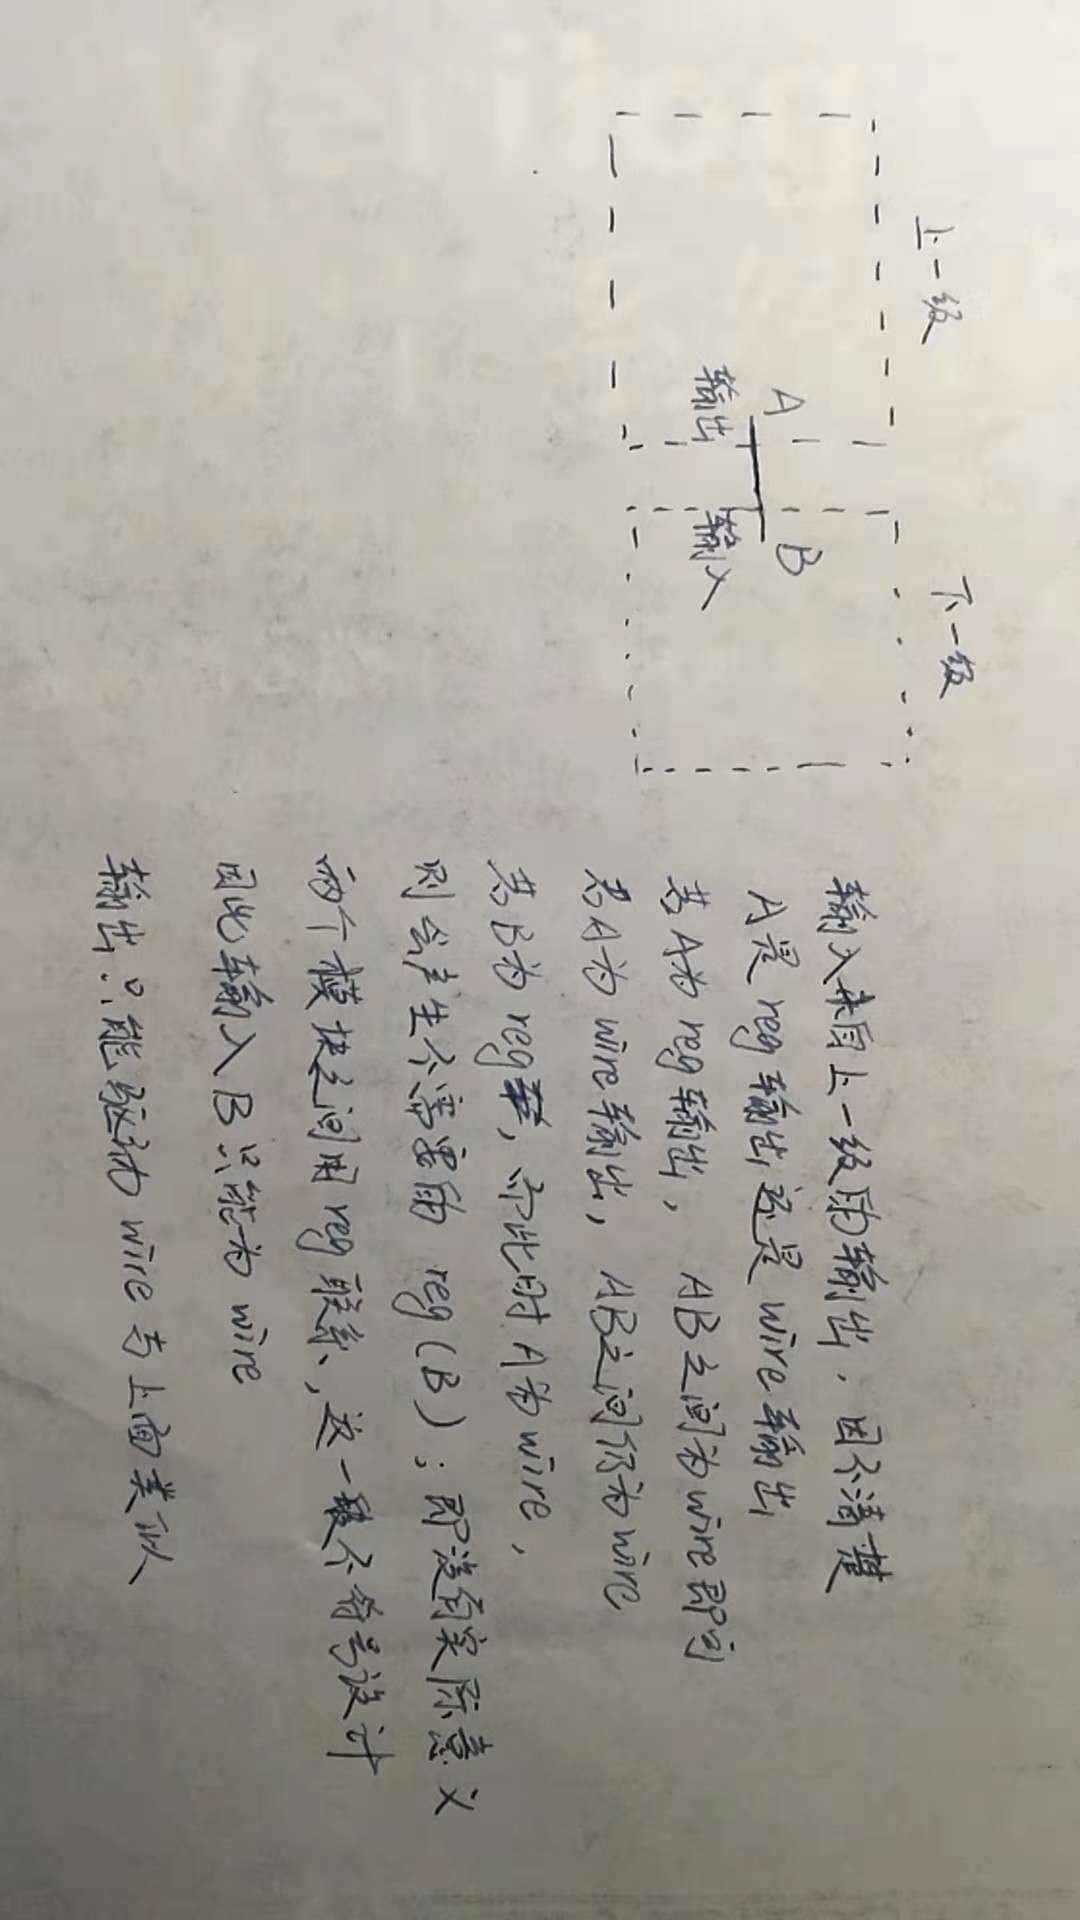 上一级
下一级
A
B
输出
输入
输入来自上一级的输出，因不清楚
A是reg输出还是wire输出
若A为reg输出，AB之间为wire即可
若A为wire输出，AB之间仍为wire
若B为reg，而此时A为wire，
则会产生不需要的reg(B)；即没有实际意义
两个模块之间用reg联系，这一般不符号设计
因此输入B只能为wire
输出只能驱动wire与上面类似